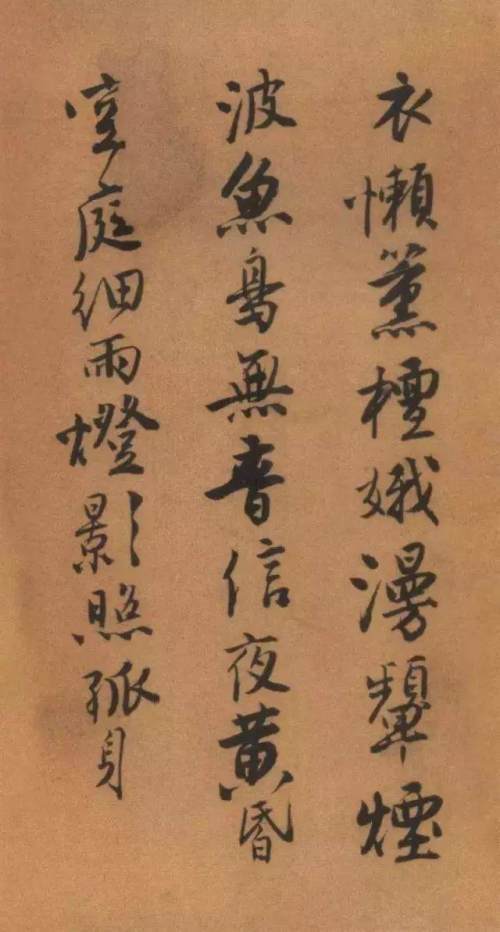 衣懶薰檀娥漫顰煙
波魚鳥無音信夜黄昏
空庭細雨燈影照孤身